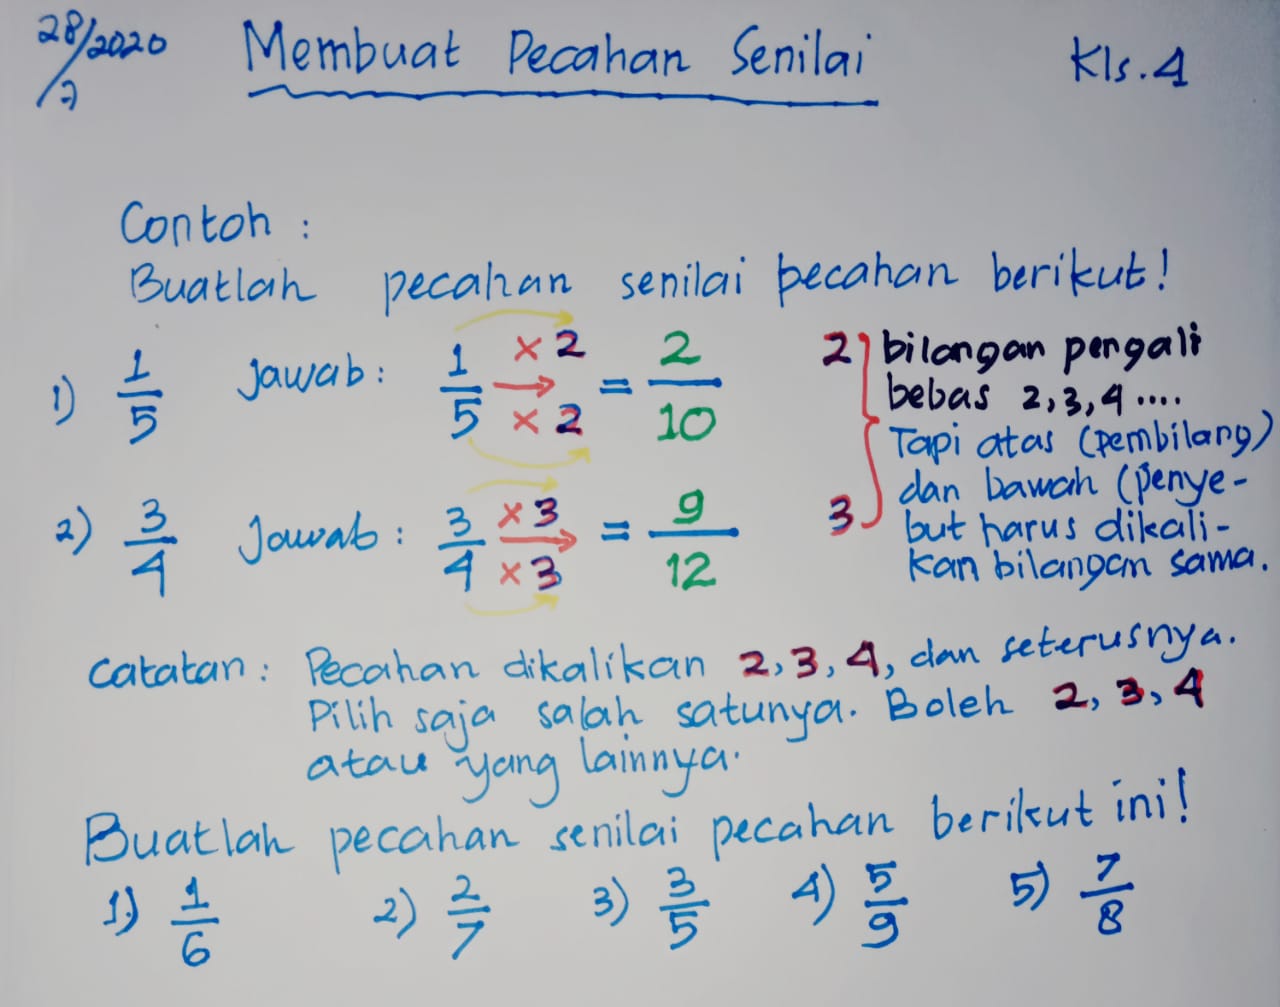 28/7/2020 Membuat Pecahan Senilai Kls.4
Contoh :
Buatlah pecahan senilai pecahan berikut!
1) 1/5 Jawab : 1/5 × 2 → × 2 = 2/10
2) 3/4 Jawab : 3/4 × 3 → × 3 = 9/12
2 3 } bilangan pengali
bebas 2,3,4 ....
Tapi atas (pembilang)
dan bawah (penye-
but harus dikali-
kan bilangan sama.
Catatan : Pecahan dikalikan 2, 3, 4, dan seterusnya.
Pilih saja salah satunya. Boleh 2, 3, 4
atau yang lainnya.
Buatlah pecahan senilai pecahan berikut ini!
1.) 1/6 2) 2/7 3) 3/5 4) 5/9 5) 7/8